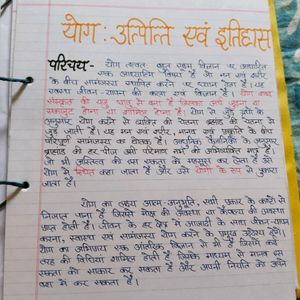 योग: उत्पित्ति एवं इतिहास
परिचय- योग तत्वतः बहुत सूक्ष्म विज्ञान पर आधारित
एक आध्यात्मिक विषय है जो मन एवं शरीर
के बीच सामंजस्य स्थापित करने पर ध्यान देता है। यह
स्वस्थ जीवन-यापन की कला एवं विज्ञान है। योग शब्द
संस्कृत की युज् धातु से बना है जिसका अर्थ जुड़ना या
एकजुट होना या शामिल होना है। योग से जुड़े ग्रंथों के
अनुसार योग करने से व्यक्ति की चेतना ब्रह्मांड की चेतना से
जुड़ जाती है। यह मन एवं शरीर, मानव एवं प्रकृति के बीच
परिपूर्ण सामंजस्य का द्योतक है। आधुनिक वैज्ञानिकों के अनुसार
ब्रह्मांड की हर चीज उसी परिमाण नभ की अभिव्यक्ति मात्र है।
जो भी अस्तित्व की इस एकता को महसूस कर लेता है उसे
योग में स्थित कहा जाता है और उसे योगी के रूप में पुकारा
जाता है।
योग का लक्ष्य आत्म-अनुभूति, सभी प्रकार के कष्टों से
निजात पाना है जिससे मोक्ष की अवस्था या कैवल्य की अवस्था
प्राप्त होती है। जीवन के हर क्षेत्र में आजादी के साथ जीवन-यापन
करना, स्वास्थ्य एवं सामंजस्य योग करने के प्रमुख उद्देश्य होंगे।
योग का अभिप्राय एक आंतरिक विज्ञान से भी है जिसमें कई
तरह की विधियां शामिल होती हैं जिनके माध्यम से मानव इस
एकता को साकार कर सकता है और अपनी नियति को अपने
वश में कर सकता है।